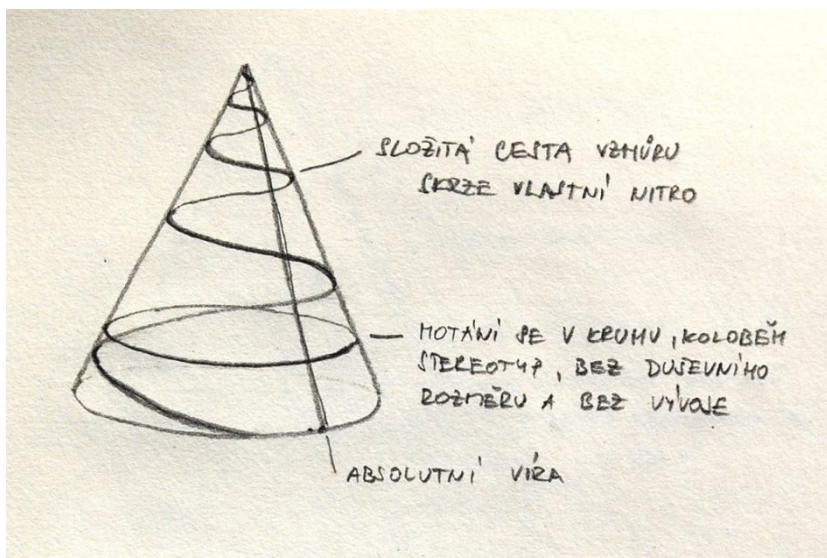 SLOŽITÁ CESTA VZHŮRU
SKRZE VLASTNÍ NITRO
MOTÁNÍ SE V KRUHU, KOLOBĚH
STEREOTYP, BEZ DUŠEVNÍHO
ROZMĚRU A BEZ VÝVOJE
ABSOLUTNÍ VÍRA